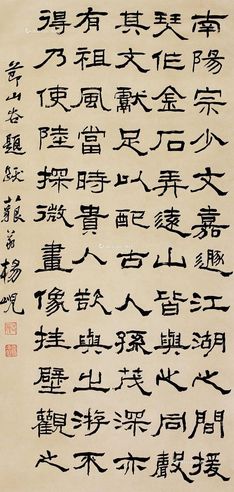 南陽宗少文嘉遯江湖之間援
琴作金石弄遠山皆與之同聲
其文獻足以配古人孫茂深亦
有祖風當時貴人欲與之游不
得乃使陸探微畫像挂壁觀之
節山谷題跋 藐翁楊峴